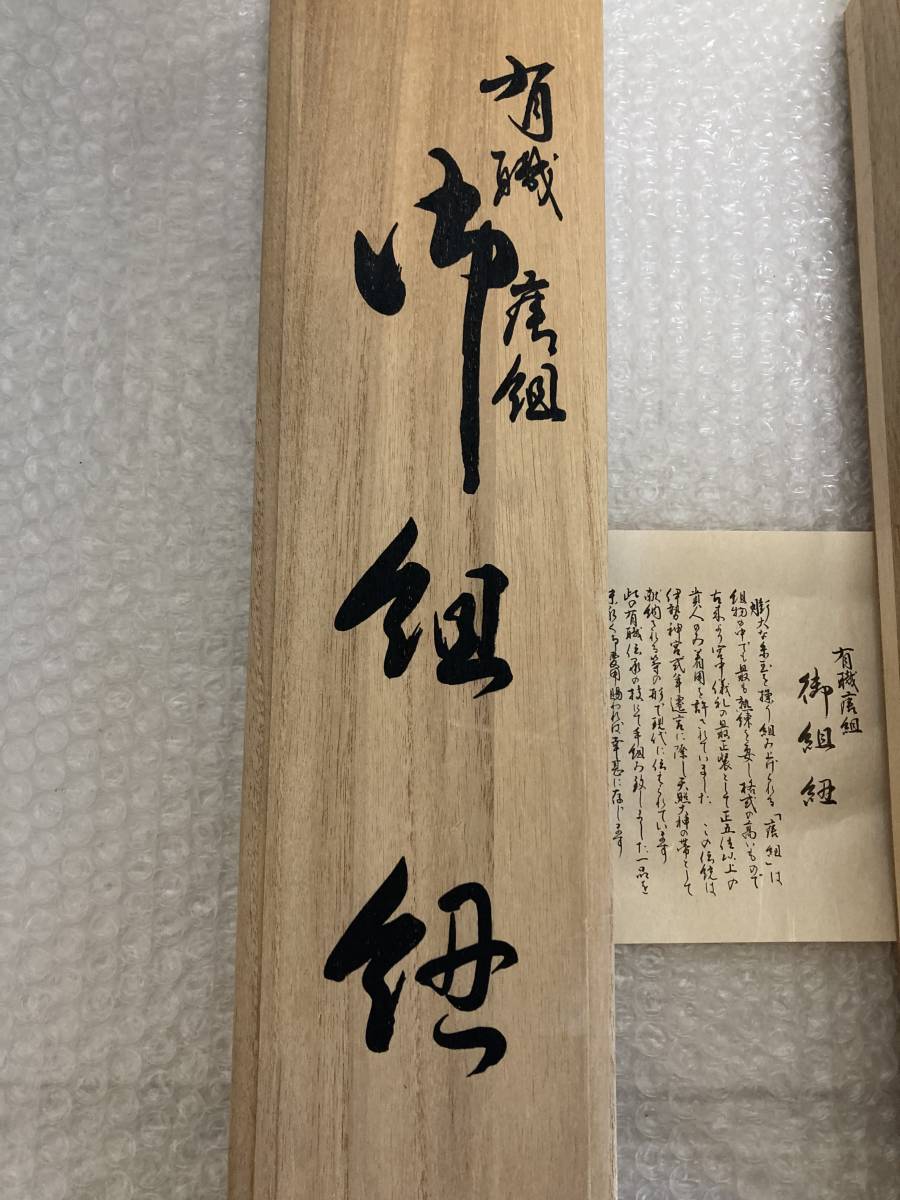 有職
唐組
御組紐
有職唐組
御組紐
膨大な糸玉を操り組み上げられる「唐組」は
組物の中でも最も熟練を要し格式の高いもので
古来より宮中儀礼の最正装として正五位以上の
貴人のみ着用を許されていました この伝統は
伊勢神宮式年遷宮に際し天照大神の帯として
献納される等の形で現代に伝えられています
此の有職伝承の技にて手組み致しました一品を
末永くご愛用賜われば幸甚に存じます